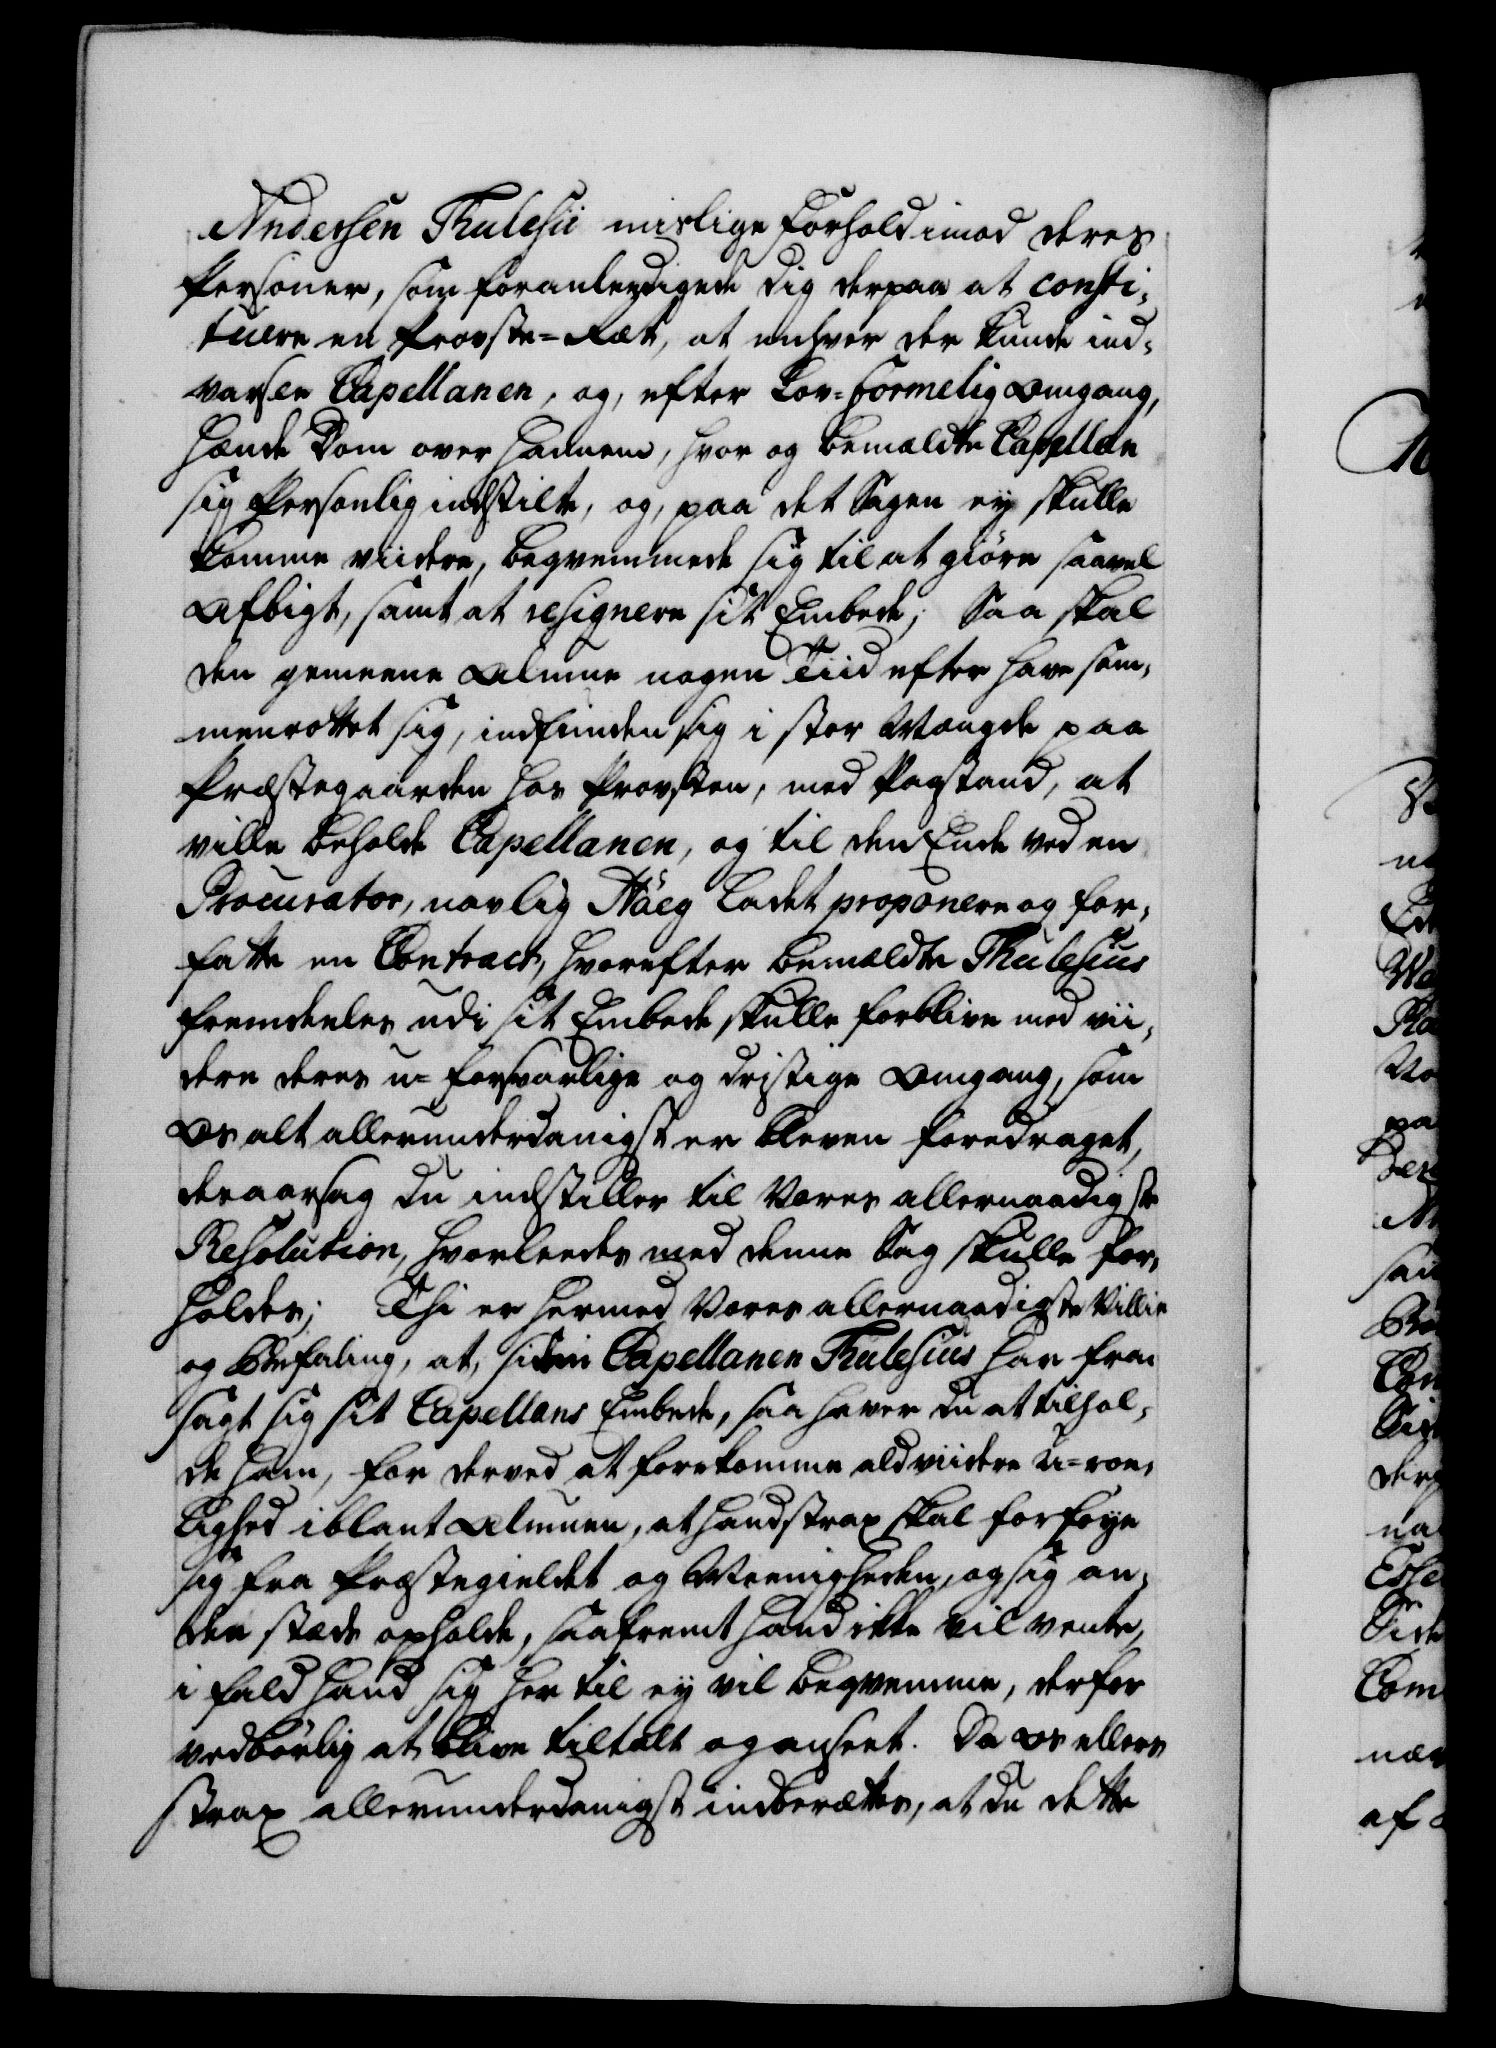 Andersen Thulesii mislige Forhold imod deres
Personer, som foranleedigede dig derpaa at consti-
tuere en Provste-Ræt, at enhver der kunde ind-
varsle Capellanen, og, efter Lov-formelig Omgang,
hænde Dom over hannem, hvor og bemældte Capellan
sig Personlig indstilte, og, paa det Sagen ey skulle
komme viidere, beqvemmede sig til at giöre saavel
Afbigt, samt at resignere sit Embede; Saa skal
den gemeene Almue nogen Tiid efter have sam-
menrottet sig, indfunden sig i stor Mængde paa
Præstegaarden hos Provsten, med Paastand, at
ville beholde Capellanen, og til den Ende ved en
Procurator, navlig Höeg ladet proponere og for-
fatte en Contract, hvorefter bemældte Thulesius
fremdeeles udi sit Embede skulle forblive med vii-
dere deres u-forsvarlige og dristige Omgang, som
Os alt allerunderdanigst er bleven foredraget,
deraarsag du indstiller til Vores allernaadigste
Resolution, hvorleedes med denne Sag skulle for-
holdes; Thi er hermed Vores allernaadigste Villie
og Befaling, at, siden Capellanen Thulesius har fra-
sagt sig sit Capellans Embede, saa haver du at tilhol-
de ham, for derved at forekomme ald viidere u-roe-
lighed iblant Almuen, at hand strax skal forföye
sig fra Præstegieldet og Meenigheden, og sig an-
den stæds opholde, saafremt hand ikke vil vente,
i fald hand sig her til ey vil beqvemme, derfor
vedbörlig at blive tiltalt og anseet. Da Os ellers
strax allerunderdanigst indberættes, at du dette